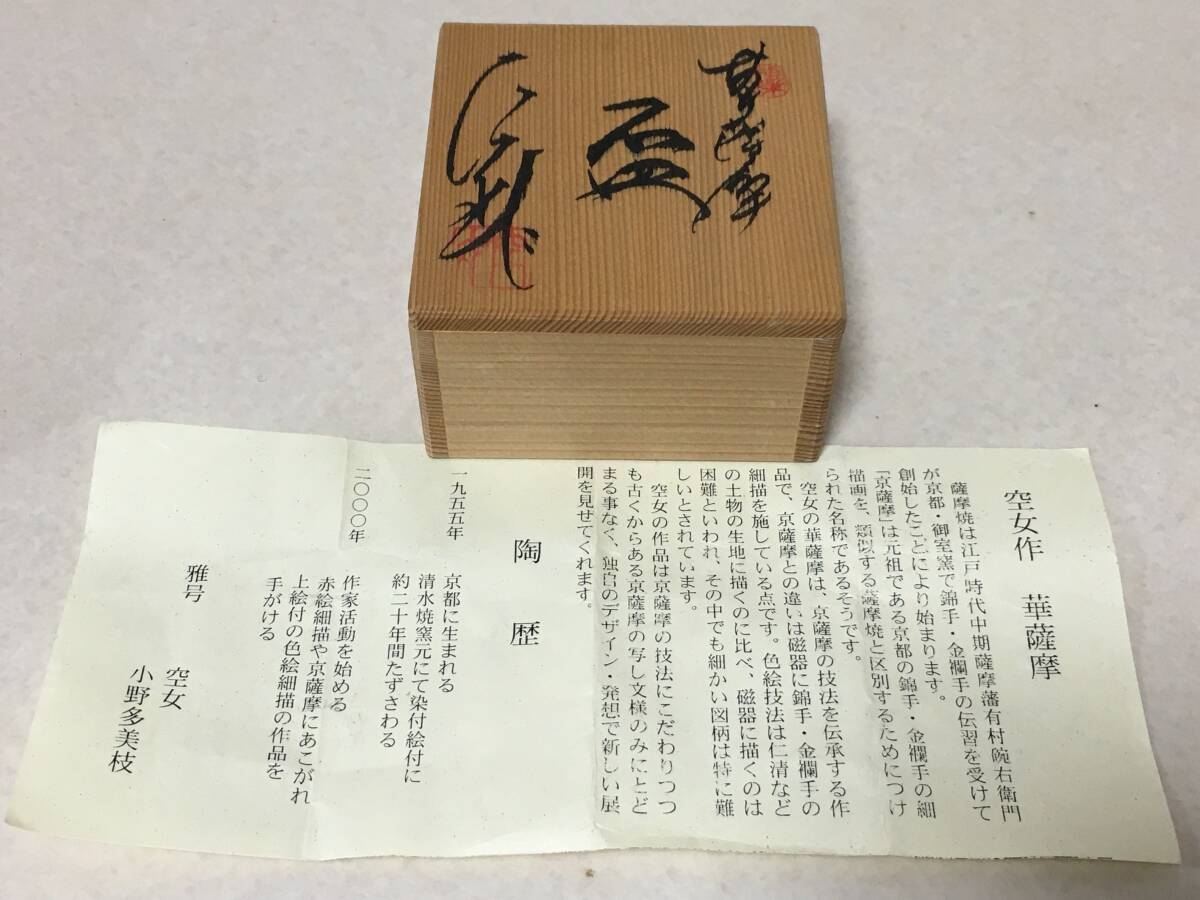 華薩摩
盃
空女作　華薩摩
薩摩焼は江戸時代中期薩摩藩有村碗右衛門
が京都・御室窯で錦手・金襴手の伝習を受けて
創始したことにより始まります。
「京薩摩」は元祖である京都の錦手・金襴手の細
描画を、類似する薩摩焼と区別するためにつけ
られた名称であるそうです。
空女の華薩摩は、京薩摩の技法を伝承する作
品で、京薩摩との違いは磁器に錦手・金襴手の
細描を施している点です。色絵技法は仁清など
の土物の生地に描くのに比べ、磁器に描くのは
困難といわれ、その中でも細かい図柄は特に難
しいとされています。
空女の作品は京薩摩の技法にこだわりつつ
も古くからある京薩摩の写し文様のみにとど
まる事なく、独自のデザイン・発想で新しい展
開を見せてくれます。
陶歴
一九五五年　京都に生まれる
清水焼窯元にて染付絵付に
約二十年間たずさわる
二〇〇〇年　作家活動を始める
赤絵細描や京薩摩にあこがれ
上絵付の色絵細描の作品を
手がける
雅号　空女
小野多美枝